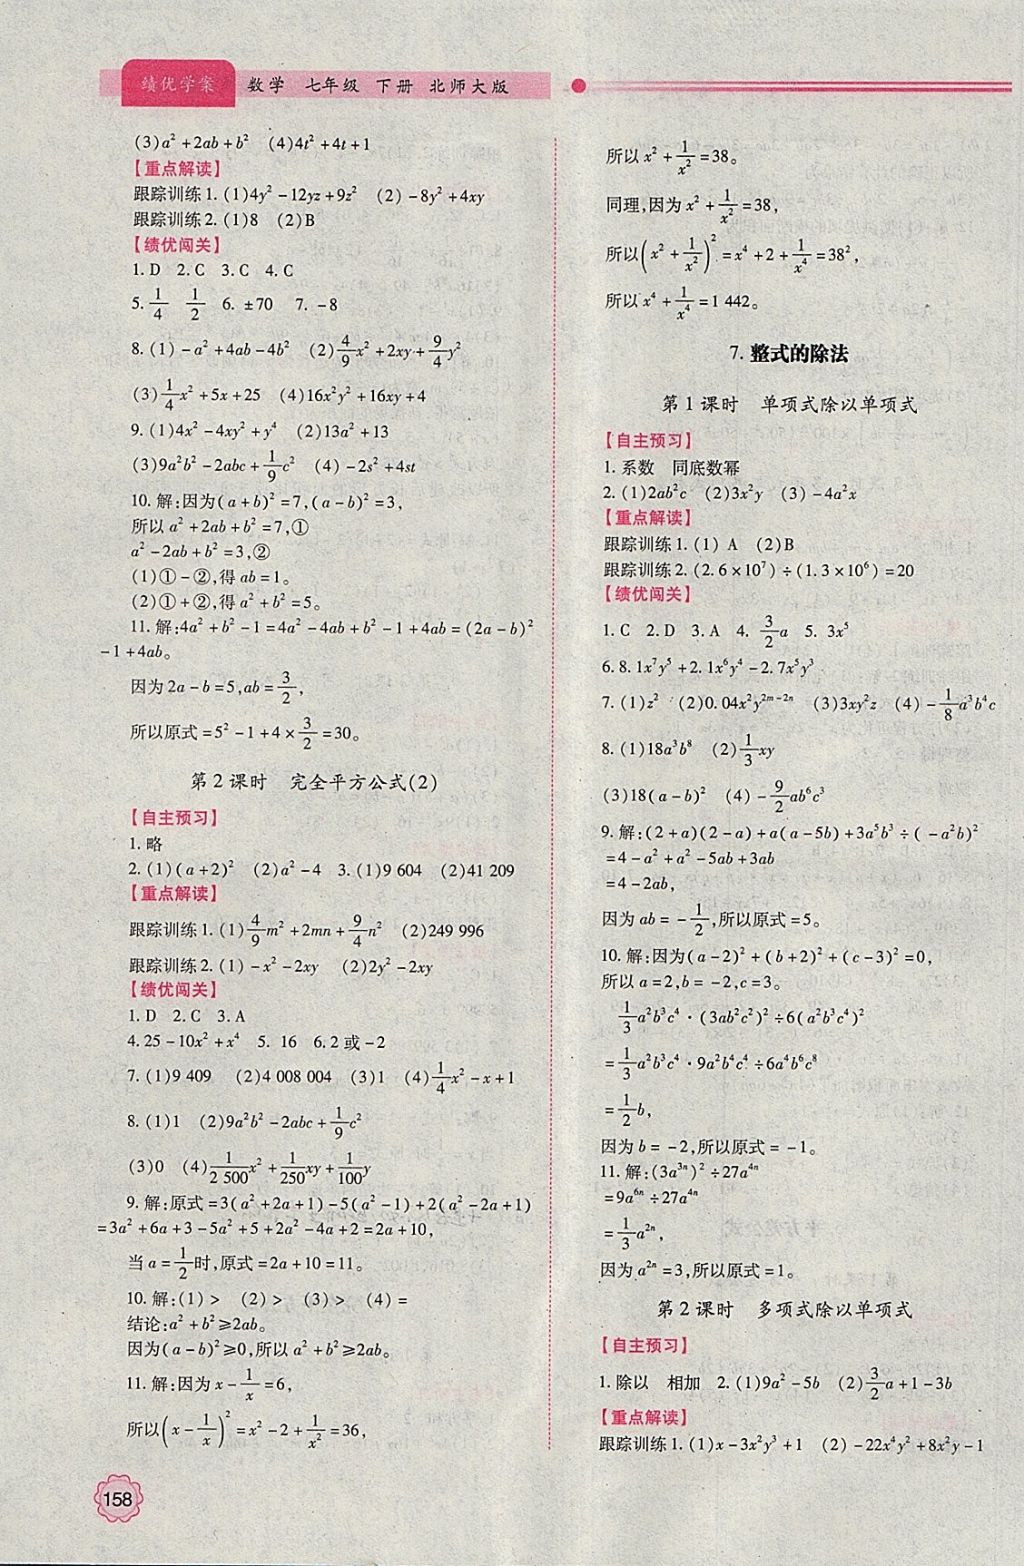 绩优学案 数学 七年级 下册 北师大版
(3)a²+2ab+b² (4)4t²+4t+1
【重点解读】
跟踪训练1.(1)4y²-12yz+9z² (2)-8y²+4xy
跟踪训练2.(1)8 (2)B
【绩优闯关】
1.D 2.C 3.C 4.C
5.1/4 1/2 6.±70 7.-8
8.(1)-a²+4ab-4b² (2)4/9x²+2xy+9/4y²
(3)1/4x²+5x+25 (4)16x²y²+16xy+4
9.(1)4x²-4xy²+y⁴ (2)13a²+13
(3)9a²b²-2abc+1/9c² (4)-2s²+4st
10.解:因为(a+b)²=7,(a-b)²=3,
所以a²+2ab+b²=7,①
a²-2ab+b²=3,②
(1)①-②,得ab=1。
(2)①+②,得a²+b²=5。
11.解:4a²+b²-1=4a²-4ab+b²-1+4ab=(2a-b)²
-1+4ab。
因为2a-b=5,ab=3/2,
所以原式=5²-1+4×3/2=30。
第2课时 完全平方公式(2)
【自主预习】
1.略
2.(1)(a+2)² (2)a²-4 3.(1)9 604 (2)41 209
【重点解读】
跟踪训练1.(1)4/9m²+2mn+9/4n² (2)249 996
跟踪训练2.(1)-x²-2xy (2)2y²-2xy
【绩优闯关】
1.D 2.C 3.A
4.25-10x²+x⁴ 5.16 6.2或-2
7.(1)9 409 (2)4 008 004 (3)1 (4)1/4x²-x+1
8.(1)1 (2)9a²b²-2abc+1/9c²
(3)0 (4)1/2 500x²+1/250xy+1/100y
9.解:原式=3(a²+2a+1)-5(a²-1)+2(a²-2a+1)
=3a²+6a+3-5a²+5+2a²-4a+2=2a+10,
当a=1/2时,原式=2a+10=11。
10.解:(1)> (2)> (3)> (4)=
结论:a²+b²≥2ab。
因为(a-b)²≥0,所以a²+b²≥2ab。
11.解:因为x-1/x=6,
所以(x-1/x)²=x²-2+1/x²=36,
158
所以x²+1/x²=38。
同理,因为x²+1/x²=38,
所以(x²+1/x²)²=x⁴+2+1/x⁴=38²,
所以x⁴+1/x⁴=1 442。
7.整式的除法
第1课时 单项式除以单项式
【自主预习】
1.系数 同底数幂
2.(1)2ab²c (2)3x²y (3)-4a²x
【重点解读】
跟踪训练1.(1) A (2)B
跟踪训练2.(2.6×10⁷)÷(1.3×10⁶)=20
【绩优闯关】
1.C 2.D 3.A 4.3/2a 5.3x⁵
6.8.1x⁷y⁵+2.1x⁶y⁴-2.7x⁵y³
7.(1)z² (2)0.04x²y²ᵐ⁻²ⁿ (3)3xy²z (4)-1/8a³b⁴c
8.(1)18a³b⁸ (2)1/3xy
(3)18(a-b)² (4)-9/2ab⁶c³
9.解:(2+a)(2-a)+a(a-5b)+3a⁵b³÷(-a²b)²
=4-a²+a²-5ab+3ab
=4-2ab,
因为ab=-1/2,所以原式=5。
10.解:因为(a-2)²+(b+2)²+(c-3)²=0,
所以a=2,b=-2,c=3。
1/3a²b³c⁴·(3ab²c²)²÷6(a²b³c⁴)²
=1/3a²b³c⁴·9a²b⁴c⁴÷6a⁴b⁶c⁸
=1/2b,
因为b=-2,所以原式=-1。
11.解:(3a³ⁿ)²÷27a⁴ⁿ
=9a⁶ⁿ÷27a⁴ⁿ
=1/3a²ⁿ,
因为a²ⁿ=3,所以原式=1。
第2课时 多项式除以单项式
【自主预习】
1.除以 相加 2.(1)9a²-5b (2)3/2a+1-3b
【重点解读】
跟踪训练1.(1)x-3x²y³+1 (2)-22x⁴y²+8x²y-1